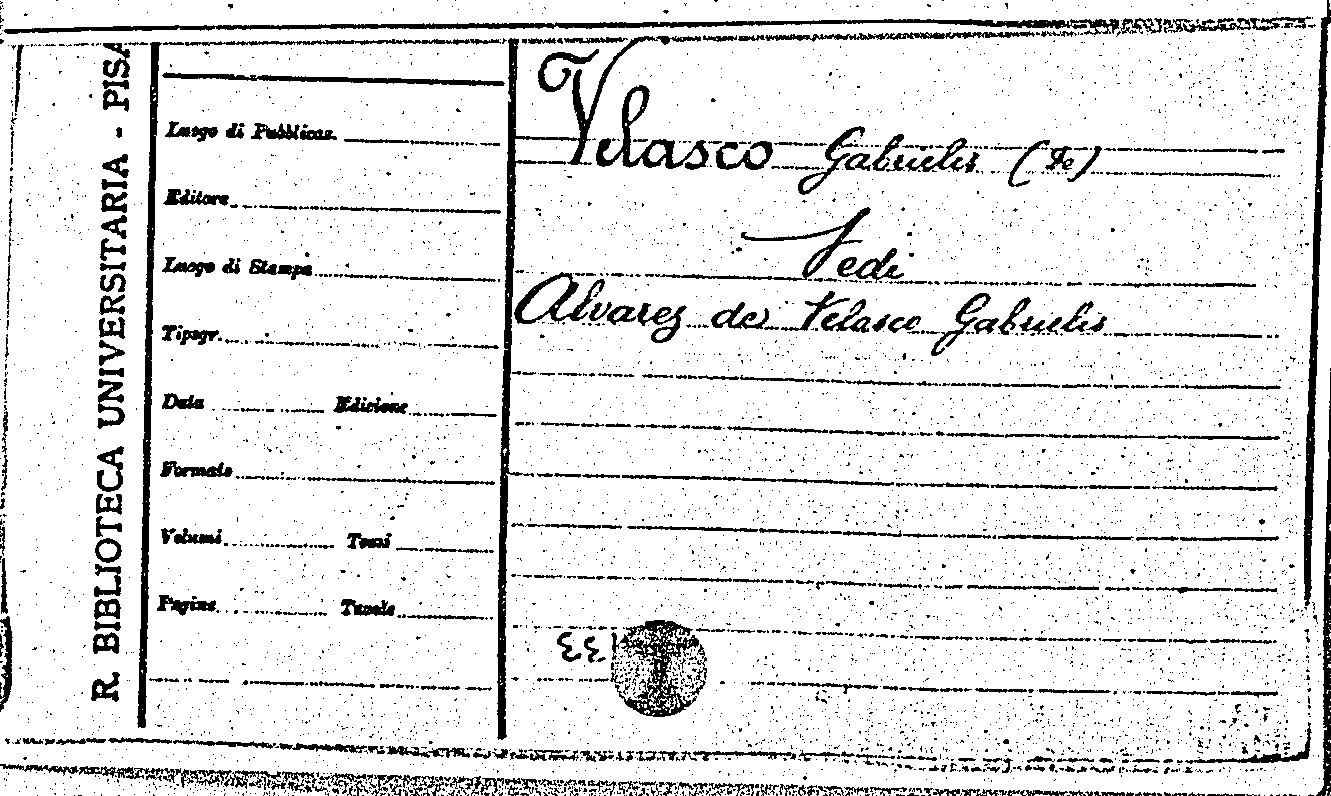 R. BIBLIOTECA UNIVERSITARIA - PISA
Luogo di Pubblicaz.
Editore
Luogo di Stampa
Tipogr.
Data Edizione
Formato
Volumi Tomi
Pagine Tavole
Velasco Gabrielis (de)
Vedi
Alvarez de Velasco Gabrielis